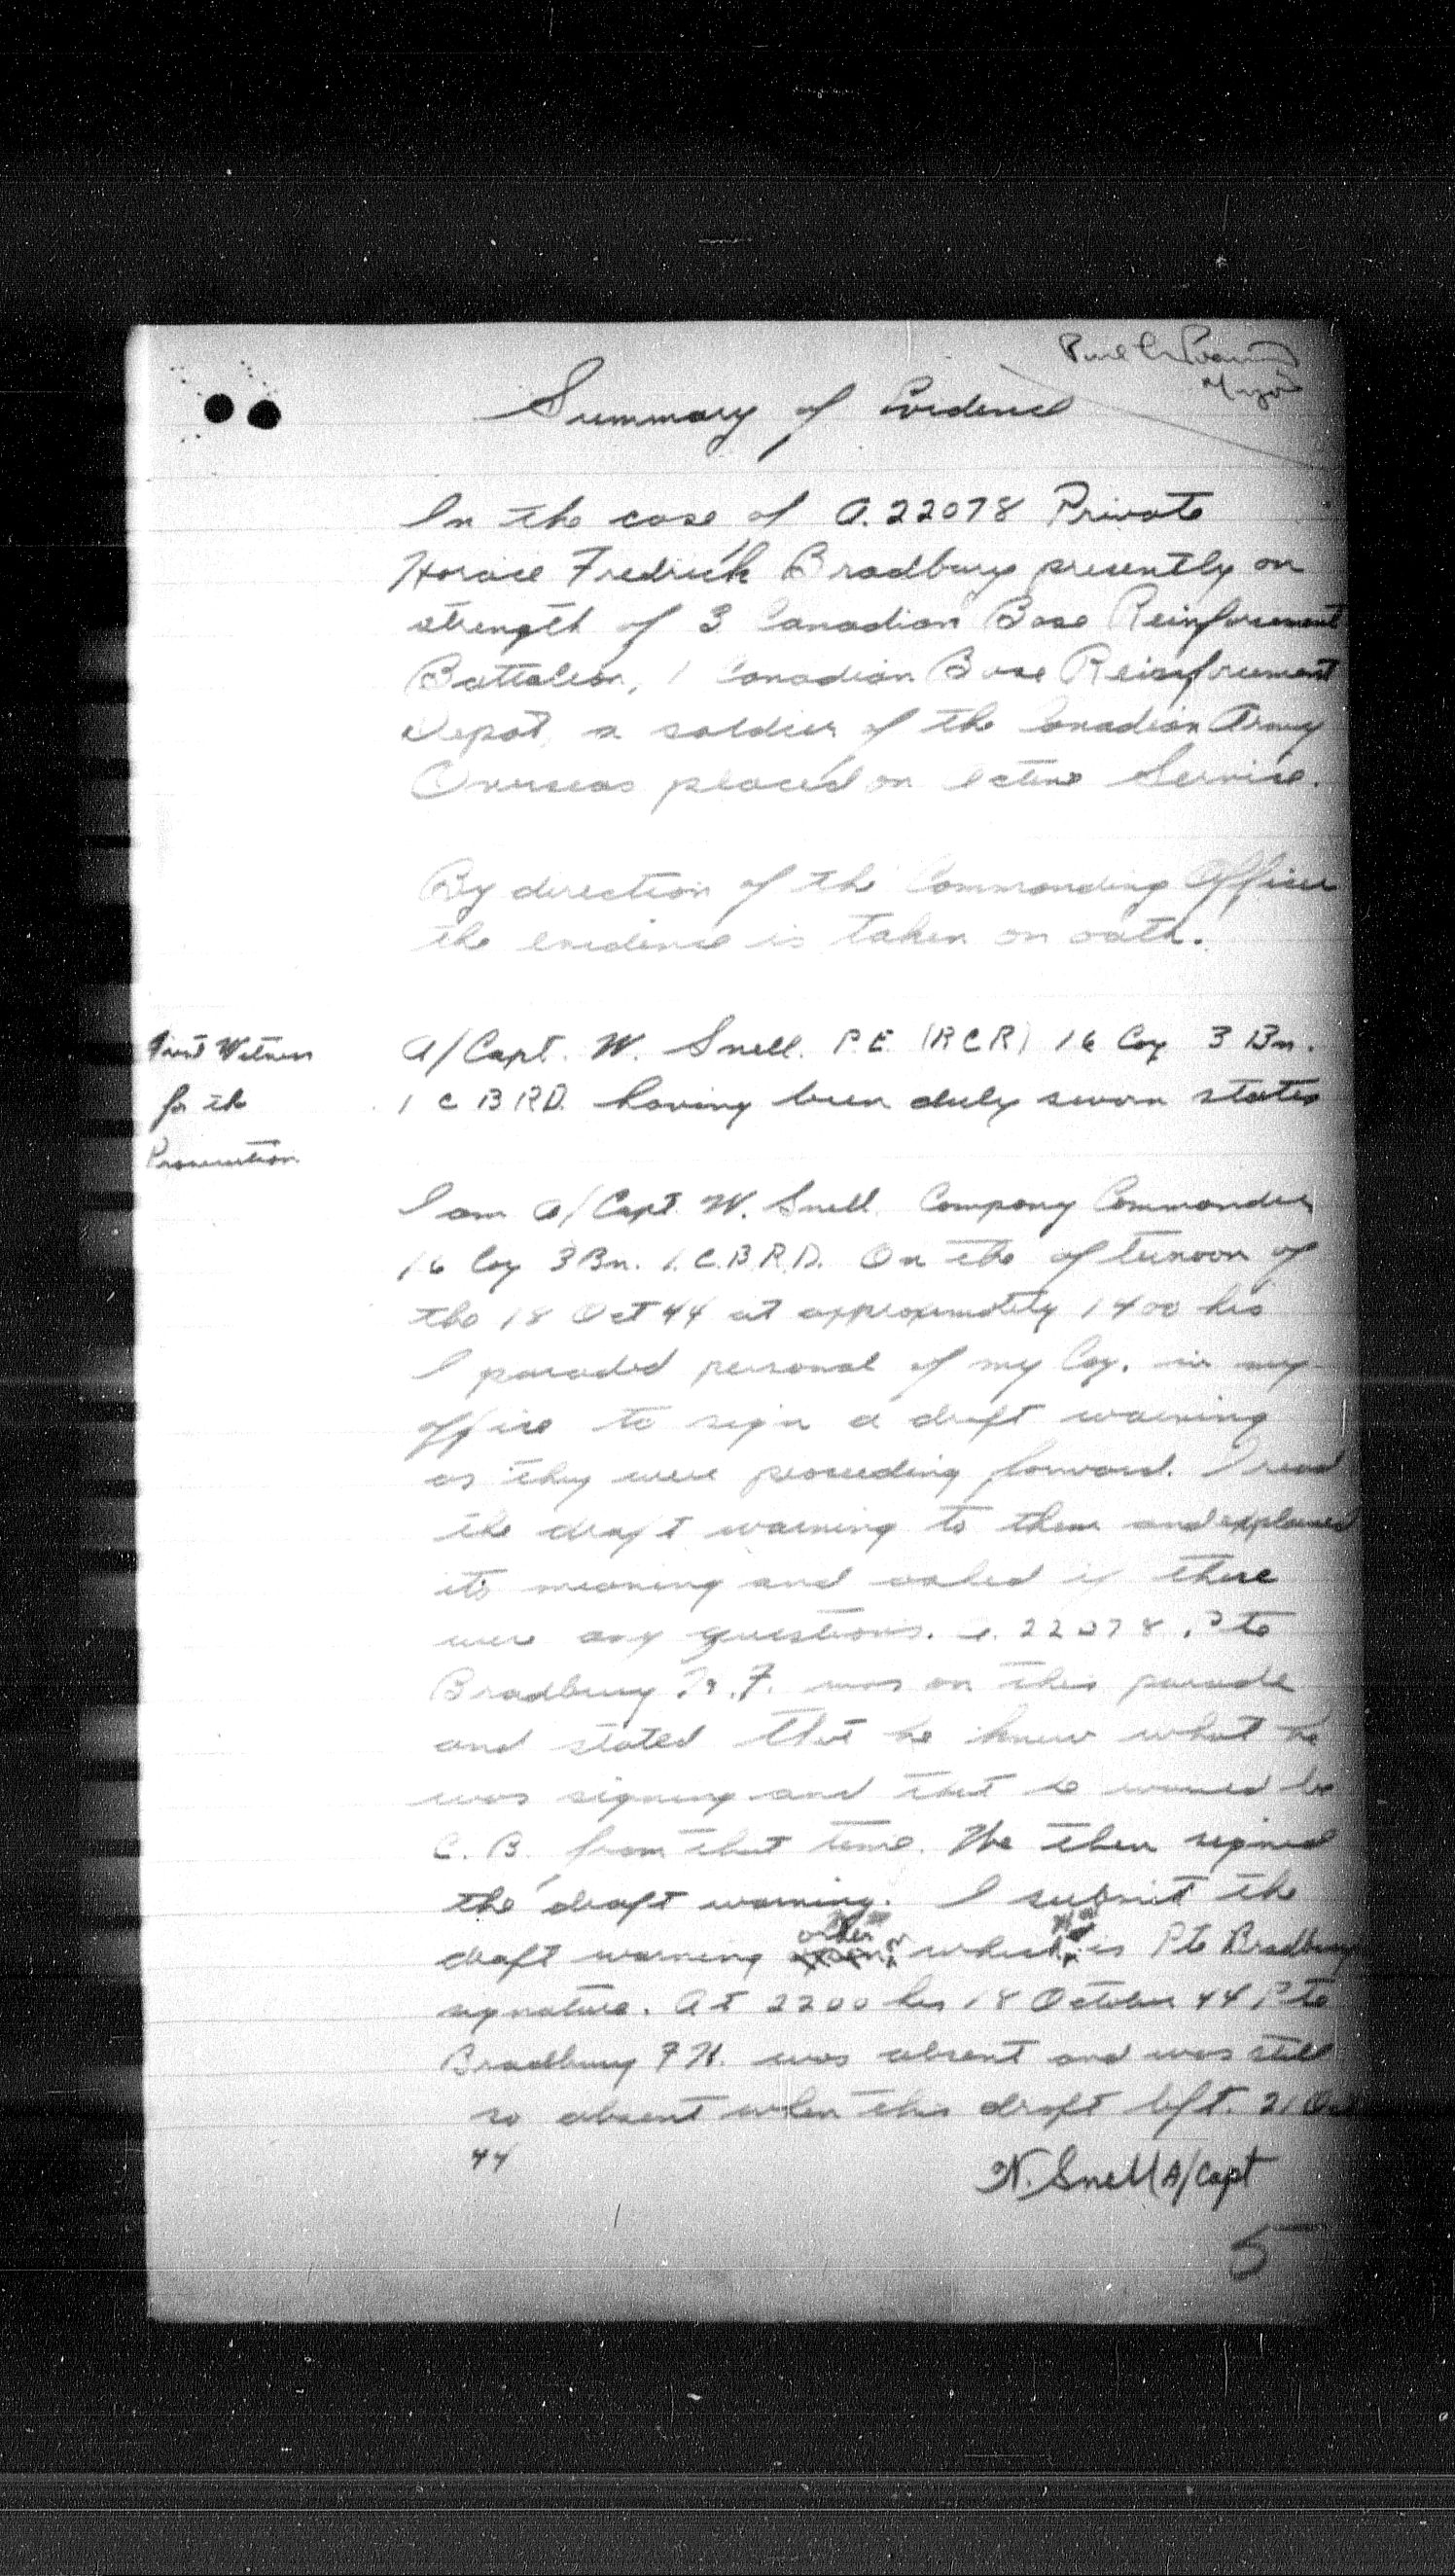 Major
Summary of Evidence
In the case of A.22078 Private
Horace Fredrick Bradbury presently on
strength of 3 Canadian Base Reinforcement
Battalion, 1 Canadian Base Reinforcement
Depot, a soldier of the Canadian Army
Overseas placed on Active Service.
By direction of the Commanding Officer
the evidence is taken on oath.
First Witness
for the
Prosecution
A/Capt. W. Snell. P.E. (RCR) 16 Coy 3 Bn.
1 C B R D. having been duly sworn states
I am A/Capt. W. Snell. Company Commander
16 Coy 3 Bn. 1. C.B.R.D. On the afternoon of
the 18 Oct 44 at approximately 1400 hrs
I paraded personal of my Coy. in my
office to sign a draft warning
as they were proceeding forward. I read
the draft warning to them and explained
its meaning and asked if there
were any questions. A. 22078. Pte
Bradbury H.F. was on this parade
and stated that he knew what he
was signing and that he would be
C. B. from that time. He then signed
the draft warning. I submit the
draft warning which is Pte Bradbury
signature. At 2200 hrs 18 October 44 Pte
Bradbury F H. was absent and was still
so absent when this draft left. 21 Oct
44
W. Snell A/Capt
5